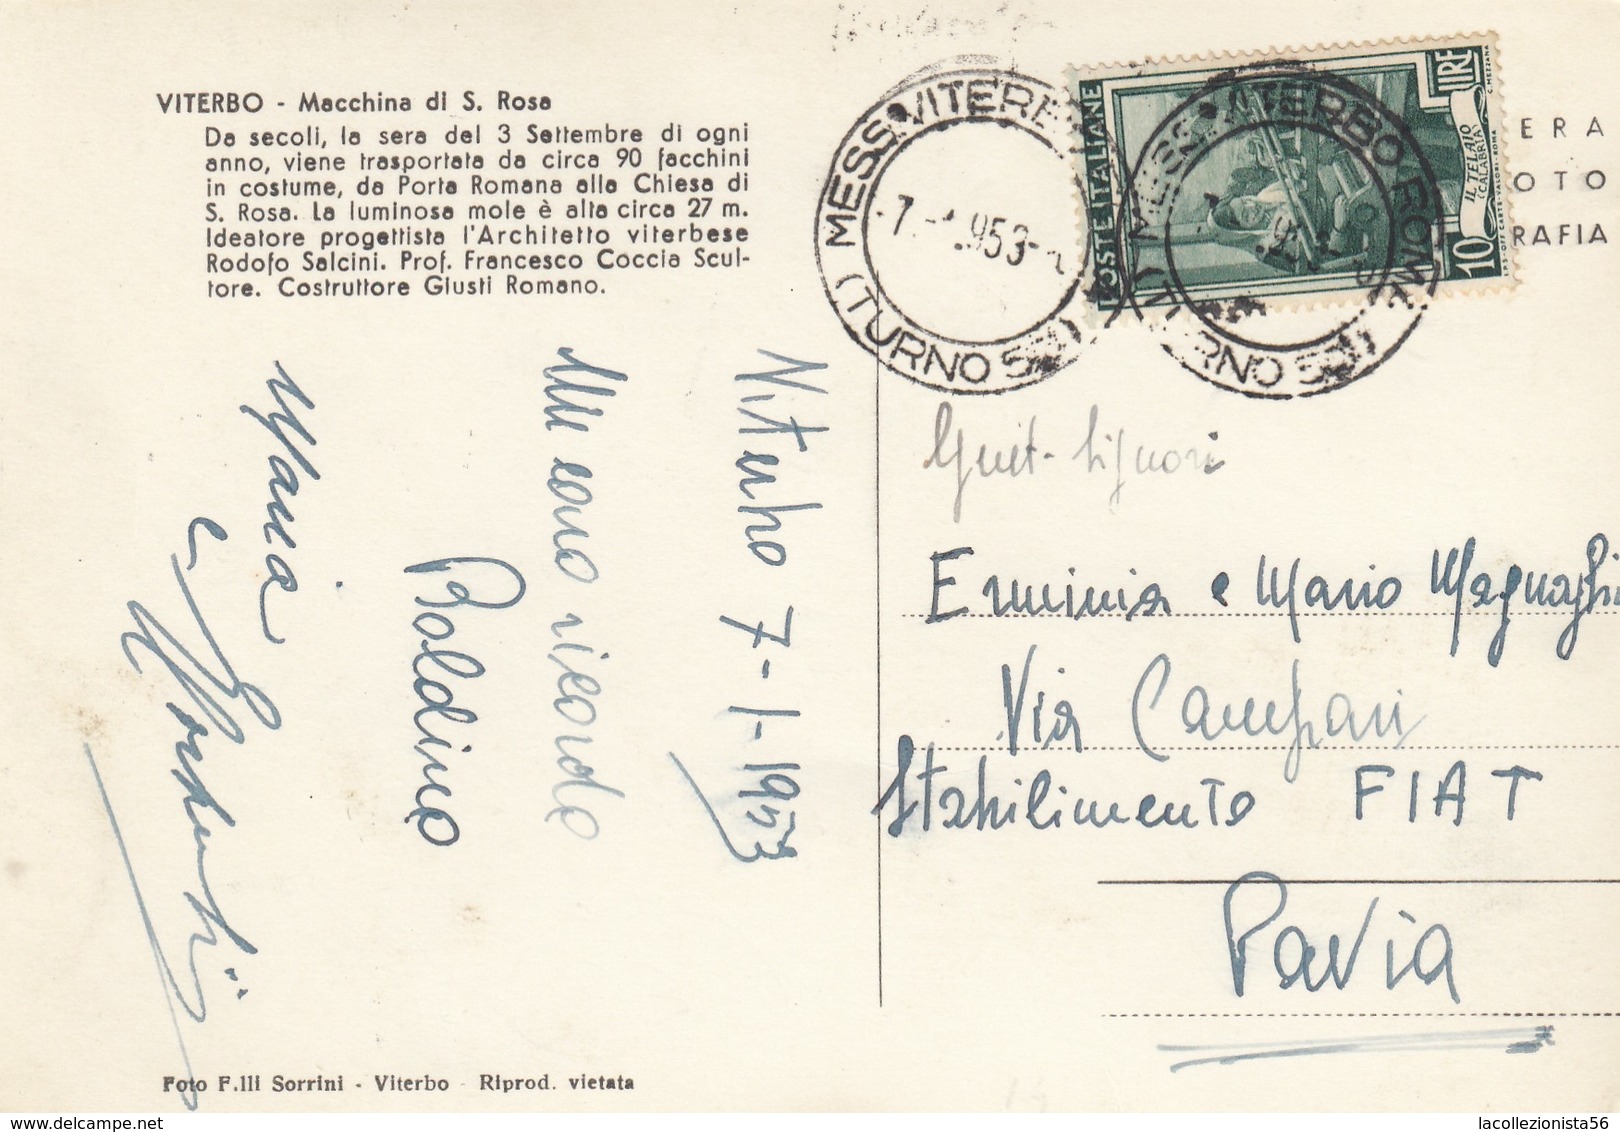 VITERBO - Macchina di S. Rosa
Da secoli, la sera del 3 Settembre di ogni
anno, viene trasportata da circa 90 facchini
in costume, da Porta Romana alla Chiesa di
S. Rosa. La luminosa mole è alta circa 27 m.
Ideatore progettista l'Architetto viterbese
Rodofo Salcini. Prof. Francesco Coccia Scul-
tore. Costruttore Giusti Romano.
MESS. VITERBO ROMA
7.-1.953
(TURNO
POSTE ITALIANE
10 LIRE
IL TELAIO
(CALABRIA)
C. MEZZANA
I.P.S.-OFF. CARTE-VALORI-ROMA
MESS. VITERBO ROMA
(TURNO
ERA
OTO
RAFIA
Viterbo 7-1-1953
Un caro ricordo
Baldino
Maria
e
Liguori
Erminia e Mario Magnaghi
Via Campari
Stabilimento FIAT
Pavia
Foto F.lli Sorrini - Viterbo - Riprod. vietata
www.delcampe.net
lacollezionista56